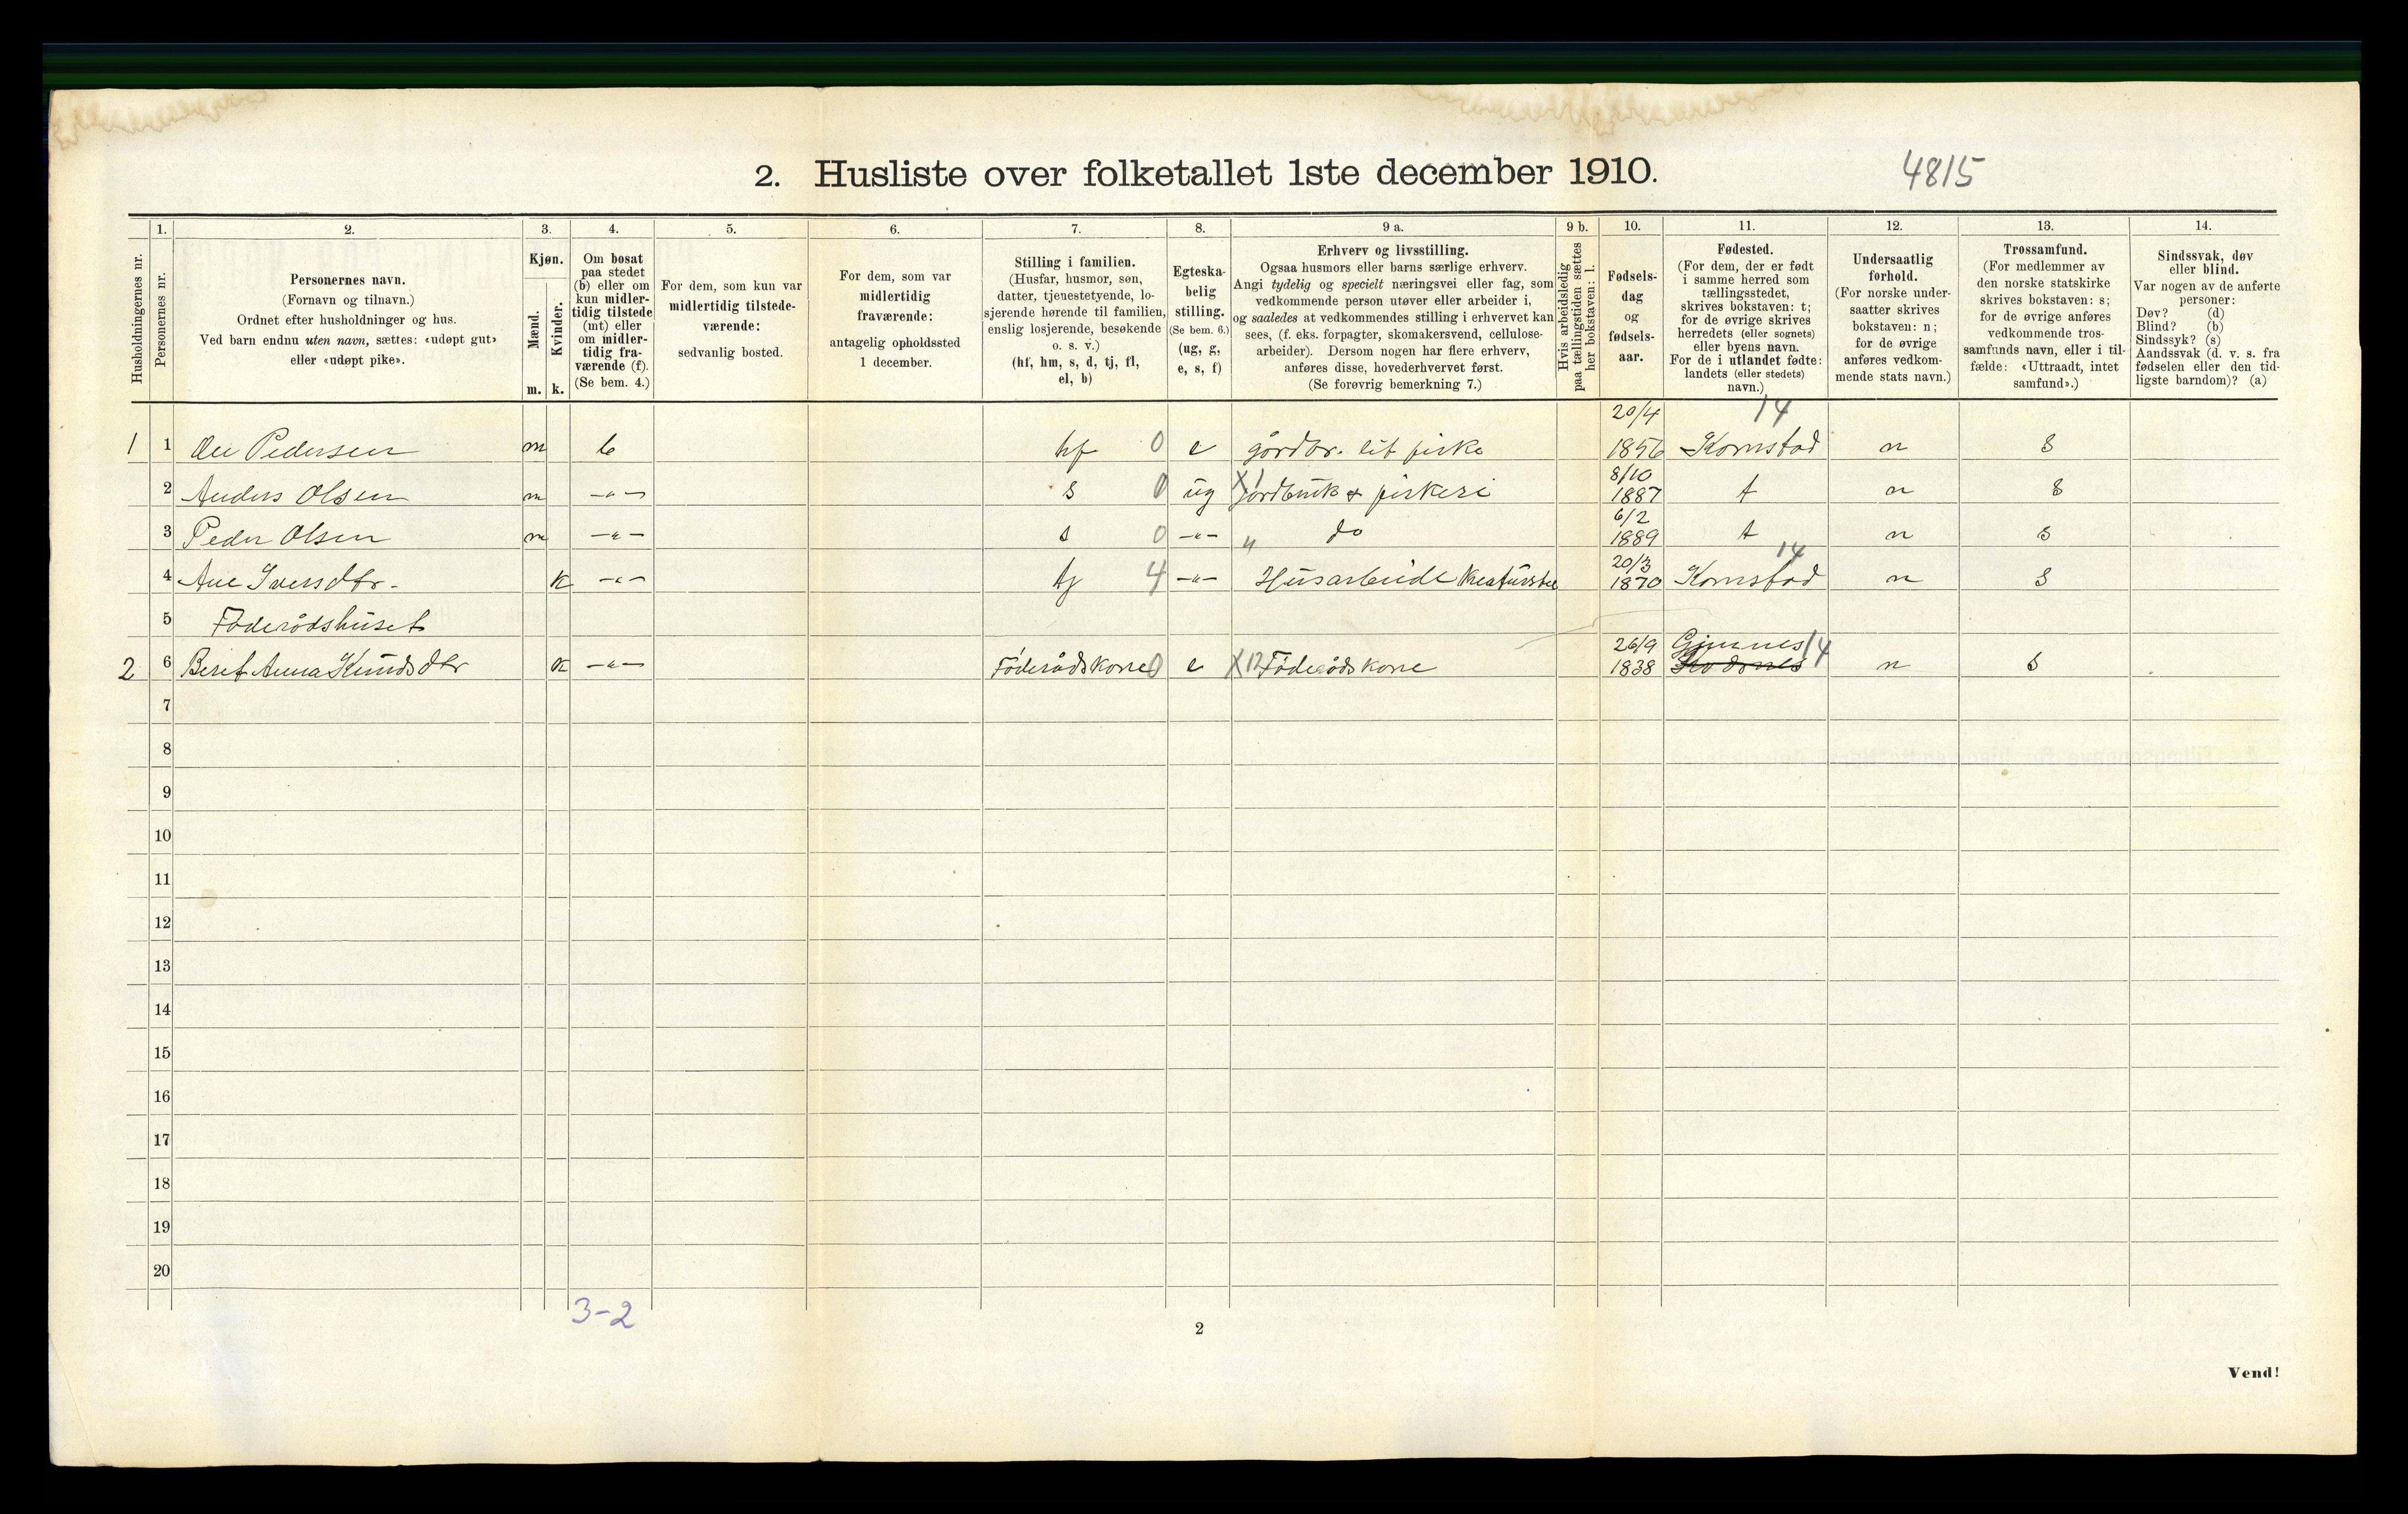 2. Husliste over folketallet 1ste december 1910.
4815
Husholdningernes nr.
1.
Personernes nr.
2.
Personernes navn.
(Fornavn og tilnavn.)
Ordnet efter husholdninger og hus.
Ved barn endnu uten navn, sættes: «udøpt gut»
eller «udøpt pike».
3.
Kjøn.
Mænd.
m.
Kvinder.
k.
4.
Om bosat
paa stedet
(b) eller om
kun midler-
tidig tilstede
(mt) eller
om midler-
tidig fra-
værende (f).
(Se bem. 4.)
5.
For dem, som kun var
midlertidig tilstede-
værende:
sedvanlig bosted.
6.
For dem, som var
midlertidig
fraværende:
antagelig opholdssted
1 december.
7.
Stilling i familien.
(Husfar, husmor, søn,
datter, tjenestetyende, lo-
sjerende hørende til familien,
enslig losjerende, besøkende
o. s. v.)
(hf, hm, s, d, tj, fl,
el, b)
8.
Egteska-
belig
stilling.
(Se bem. 6.)
(ug, g,
e, s, f)
9 a.
Erhverv og livsstilling.
Ogsaa husmors eller barns særlige erhverv.
Angi tydelig og specielt næringsvei eller fag, som
vedkommende person utøver eller arbeider i,
og saaledes at vedkommendes stilling i erhvervet kan
sees, (f. eks. forpagter, skomakersvend, cellulose-
arbeider). Dersom nogen har flere erhverv,
anføres disse, hovederhvervet først.
(Se forøvrig bemerkning 7.)
9 b.
Hvis arbeidsledig
paa tællingstiden sættes
her bokstaven: l.
10.
Fødsels-
dag
og
fødsels-
aar.
11.
Fødested.
(For dem, der er født
i samme herred som
tællingsstedet,
skrives bokstaven: t;
for de øvrige skrives
herredets (eller sognets)
eller byens navn.
For de i utlandet fødte:
landets (eller stedets)
navn.)
12.
Undersaatlig
forhold.
(For norske under-
saatter skrives
bokstaven: n;
for de øvrige
anføres vedkom-
mende stats navn.)
13.
Trossamfund.
(For medlemmer av
den norske statskirke
skrives bokstaven: s;
for de øvrige anføres
vedkommende tros-
samfunds navn, eller i til-
fælde: «Uttraadt, intet
samfund».)
14.
Sindssvak, døv
eller blind.
Var nogen av de anførte
personer:
Døv? (d)
Blind? (b)
Sindssyk? (s)
Aandssvak (d. v. s. fra
fødselen eller den tid-
ligste barndom)? (a)
20/4 14
1 1 Ole Pedersen m b hf 0 e gårdbr. lit fiske 1856 Kornstad n S
8/10
2 Anders Olsen m -"- s 0 ug X1 jordbruk & fiskeri 1887 t n S
6/2
3 Peder Olsen m -"- s 0 -"- " do 1889 t n S
20/3 14
4 Ane Iversdtr. k -"- tj 4 -"- Husarbeide Kreaturstel 1870 Kornstad n S
5 Føderådshuset
26/9 Gjemnes 14
2 6 Beret Anna Knudsdtr k -"- Føderådskone 0 e X12 Føderådskone 1838 n S
7
8
9
10
11
12
13
14
15
16
17
18
19
20
3-2
2
Vend!